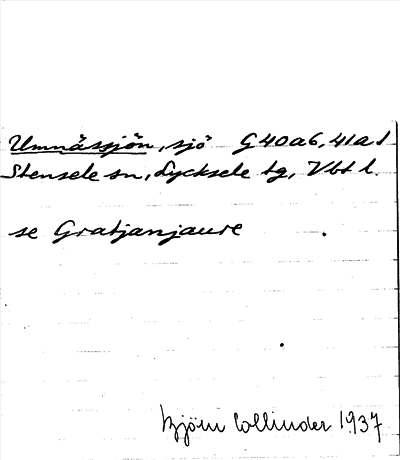 Umnässjön, sjö G40a6, 41a1
Stensele sn, Lycksele tg, Vbt l.
se Gratjanjaure
Björn Collinder 1937